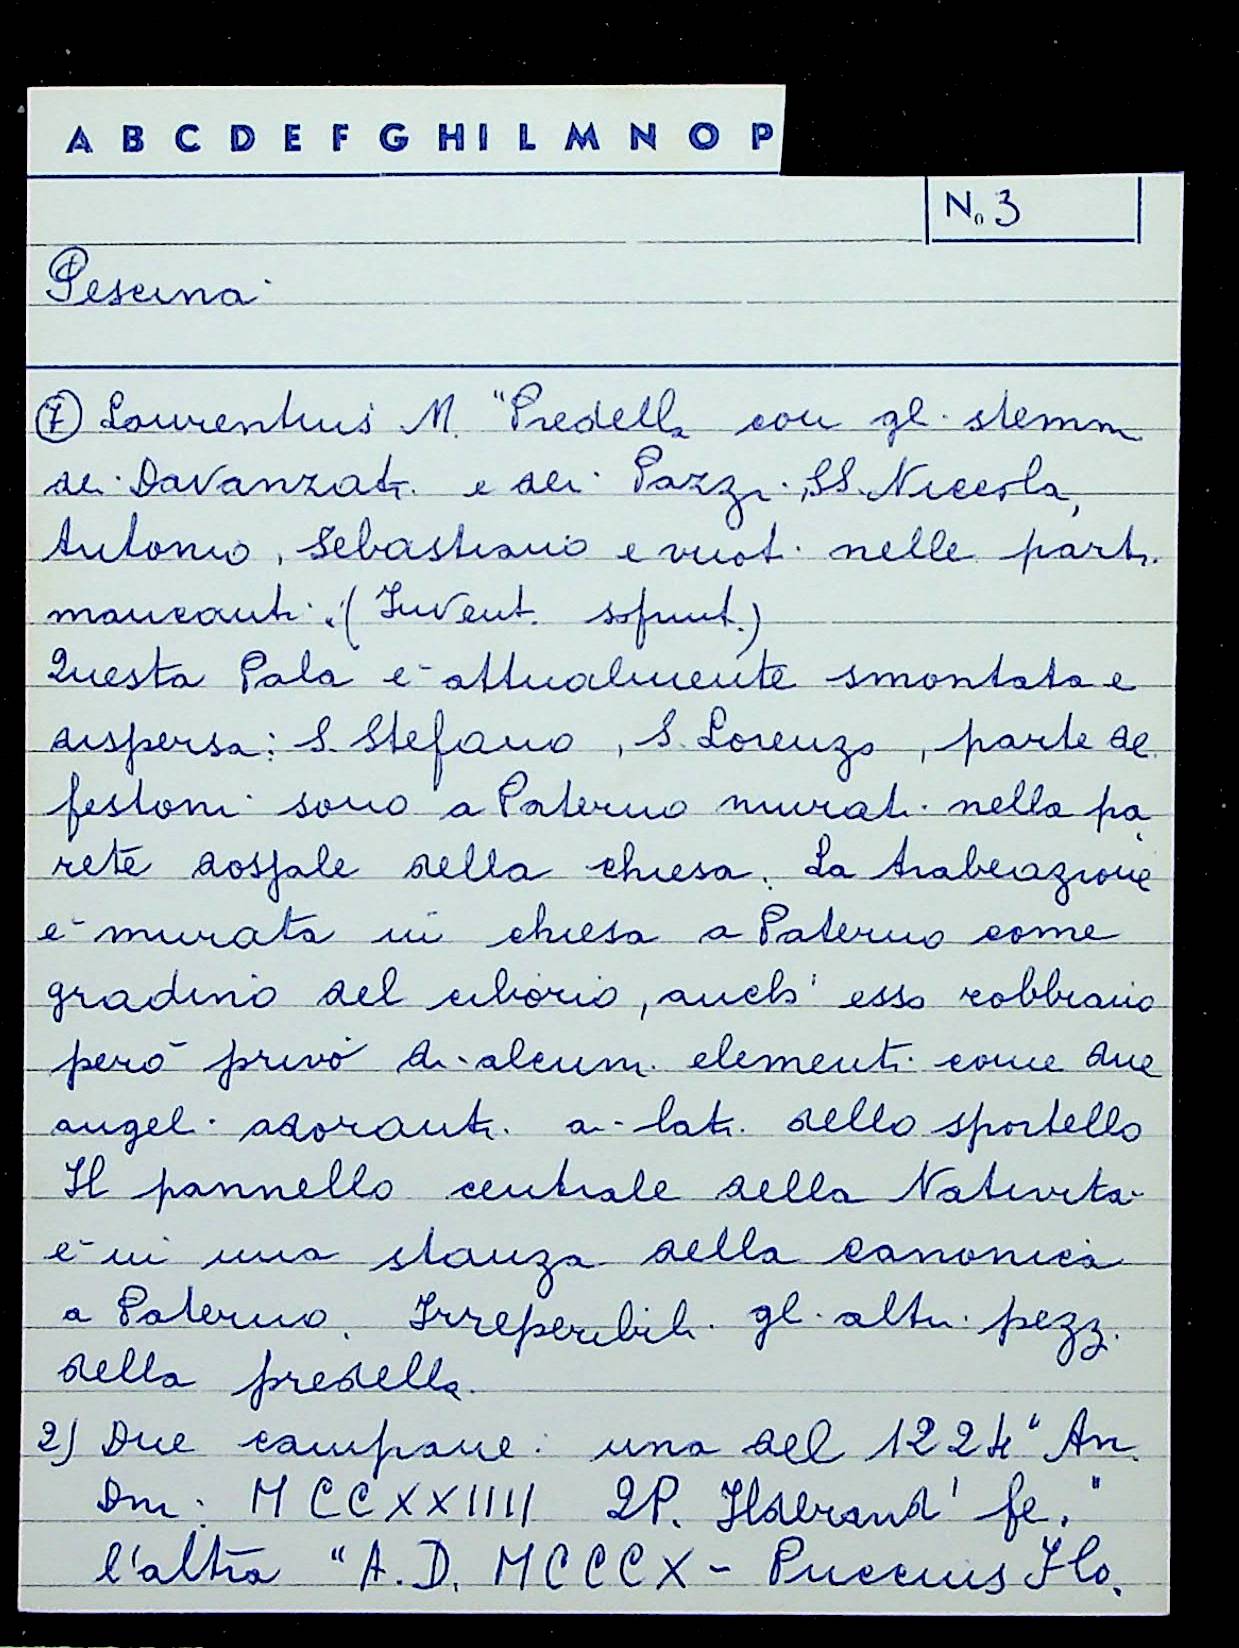 A B C D E F G H I L M N O P
N. 3
Pescina
① Laurentius M. "Predella con gli stemmi
dei Davanzati e dei Pazzi, SS. Niccola,
Antonio, Sebastiano e vuoti nelle parti
mancanti. (Invent. soprint.)
Questa Pala è attualmente smontata e
dispersa: S. Stefano, S. Lorenzo, parte dei
festoni sono a Paterno murati nella pa
rete dossale della chiesa. La trabeazione
è murata in chiesa a Paterno come
gradino del ciborio, anch' esso robbiano
però privo di alcuni elementi come due
angeli adoranti ai lati dello sportello
Il pannello centrale della Natività
è in una stanza della canonica
a Paterno. Irreperibili gli altri pezzi
della predella.
2) Due campane: una del 1224 "An.
Dni: MCCXXIIII 2P. Ildebrand' fe."
l'altra "A.D. MCCCX - Puccius Flo.